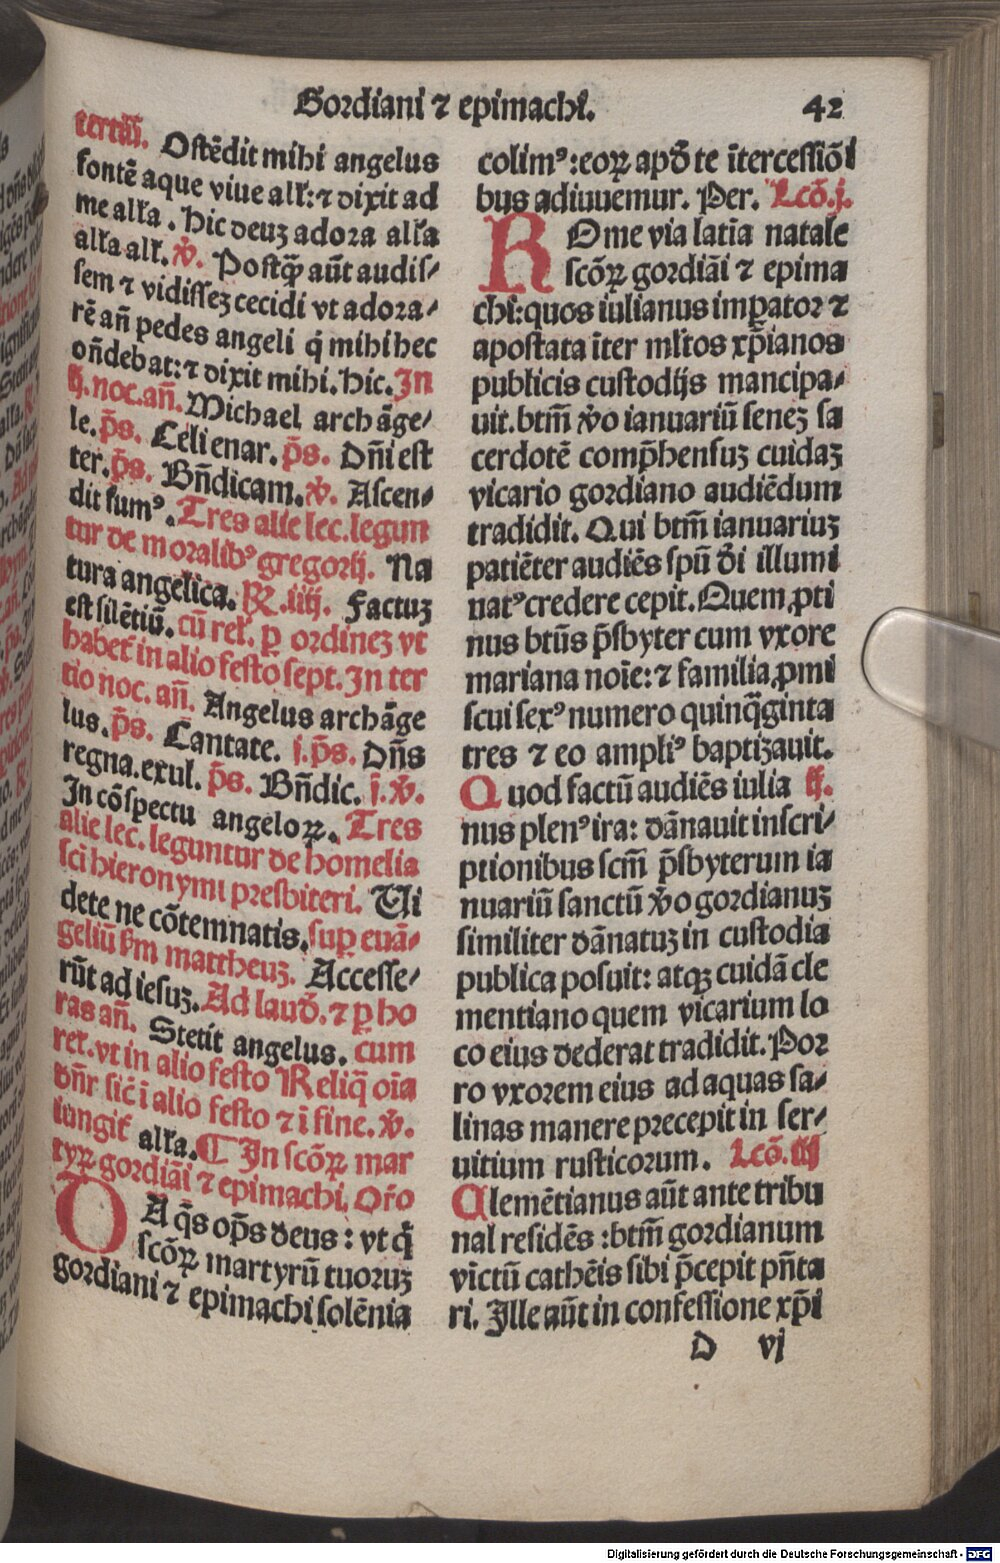 Gordiani ⁊ epimachi. 42
tertiū. Ostēdit mihi angelus
fontē aque viue all'r: ⁊ dixit ad
me all'a. Hic deuꝫ adora all'a
all'a all'. v̄. Postꝙ̄ aūt audis⸗
sem ⁊ vidisseꝫ cecidi vt adora⸗
rē añ pedes angeli q̇ mihi hec
oñdebat: ⁊ dixit mihi. Hic. In
ij. noc. añ. Michael archāge⸗
le. p̄s. Celi enar. p̄s. Dñi est
ter. p̄s. Bñdicam. v̄. Ascen⸗
dit fumꝰ. Tres alie lec. legun
tur de moralibꝰ gregorij. Na
tura angelica. ꝶ. iiij. Factuꝫ
est silētiū. cū rel'. p̲ ordineꝫ vt
habet' in alio festo sept. In ter
tio noc. añ. Angelus archāge
lus. p̄s. Cantate. j. p̄s. Dñs
regna. exul. p̄s. Bñdic. j. v̄.
In cōspectu angeloꝝ. Tres
alie lec. leguntur de homelia
sci hieronymi presbiteri. Ui
dete ne cōtemnatis. sup̲ euā⸗
geliū sm̄ mattheuꝫ. Accesse⸗
rūt ad iesuꝫ. Ad laud̄. ⁊ p̲ ho
ras añ. Stetit angelus. cum
rel'. vt in alio festo Reliq̄ oīa
dn̄r sic̄ i alio festo ⁊ ī fine. v̄.
iungit' all'a. ¶ In scōꝝ mar
tyꝝ gordiāi ⁊ epimachi. Or̄o
DA q̄s op̄s deus: vt q̇
scōꝝ martyrū tuoruꝫ
gordiani ⁊ epimachi solēnia
colimꝰ: eoꝝ apd̄ te ītercessiōi
bus adiuuemur. Per. Lcō. j.
ROme via latīa natale
scōꝝ gordiāi ⁊ epima
chi: quos iulianus imp̲ator ⁊
apostata īter ml'tos xp̄ianos
publicis custodijs mancipa⸗
uit. btm̄ v̄o ianuariū seneꝫ sa
cerdotē comp̄hensuꝫ cuidaꝫ
vicario gordiano audiēdum
tradidit. Qui btm̄ ianuariuꝫ
patiēter audiēs spū d̄i illumi
natꝰ credere cepit. Quem ꝓti
nus btūs p̄sbyter cum vxore
mariana noīe: ⁊ familia ꝓmi
scui sexꝰ numero quinq̄ginta
tres ⁊ eo ampliꝰ baptizauit.
Quod factū audiēs iulia ij.
nus plenꝰ ira: dānauit inscri⸗
ptionibus scm̄ p̄sbyterum ia
nuariū sanctū v̄o gordianuꝫ
similiter dānatuꝫ in custodia
publica posuit: atqꝫ cuidā cle
mentiano quem vicarium lo
co eius dederat tradidit. Por
ro vxorem eius ad aquas sa⸗
linas manere precepit in ser⸗
uitium rusticorum. Lcō. iij
Clemētianus aūt ante tribu
nal residēs: btm̄ gordianum
vīctū cathēis sibi p̄cepit pn̄ta
ri. Ille aūt in confessione xp̄i
D vj
Digitalisierung gefördert durch die Deutsche Forschungsgemeinschaft - DFG